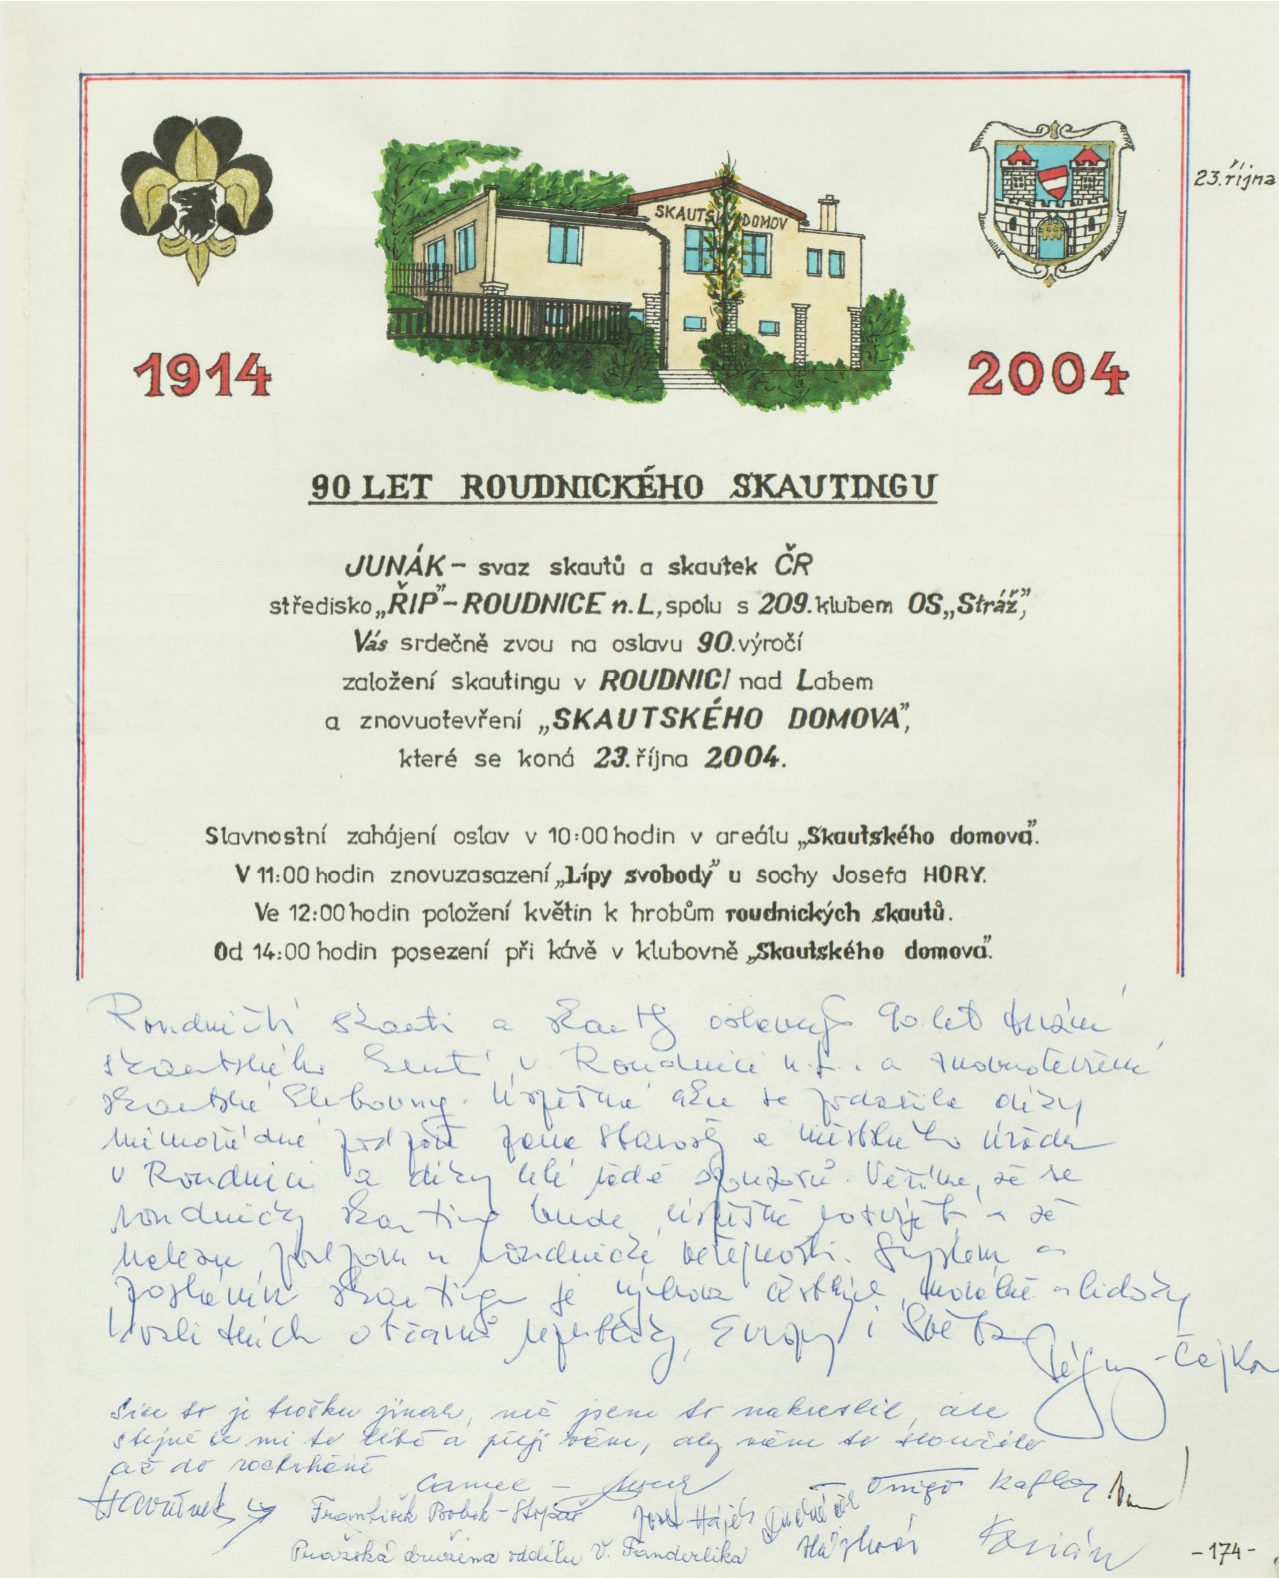 23. října
SKAUTSKÝ DOMOV
1914
2004
90 LET ROUDNICKÉHO SKAUTINGU
JUNÁK - svaz skautů a skautek ČR
středisko „ŘIP” - ROUDNICE n. L, spolu s 209. klubem OS „Stráž”,
Vás srdečně zvou na oslavu 90. výročí
založení skautingu v ROUDNICI nad Labem
a znovuotevření „SKAUTSKÉHO DOMOVA”,
které se koná 23. října 2004.
Slavnostní zahájení oslav v 10:00 hodin v areálu „Skautského domova”.
V 11:00 hodin znovuzasazení „Lípy svobody” u sochy Josefa HORY.
Ve 12:00 hodin položení květin k hrobům roudnických skautů.
Od 14:00 hodin posezení při kávě v klubovně „Skautského domova”.
Roudničtí skauti a skautky oslavují 90 let trvání
skautského hnutí v Roudnici n. L. a znovuotevření
skautské klubovny. Úspěšná akce se podařila díky
mimořádné podpoře pana starosty a městského úřadu
v Roudnici a díky celé řadě sponzorů. Věříme, že se
roudnický skauting bude úspěšně rozvíjet a že
nalezne podporu u roudnické veřejnosti. Smyslem a
posláním skautingu je výchova čestných, morálně a lidsky
kvalitních občanů republiky, Evropy i Světa.
- Čejka
Sice to je trošku jinak, než jsem to nakreslil, ale
stejně se mi to líbí a přeji vám, aby vám to sloužilo
až do roztrhání
Camel -
Havránek
František Bobek - Stopař
Josef Hájek
Pražská družina oddílu V. Fanderlika
Hájková
Florián
- 174 -